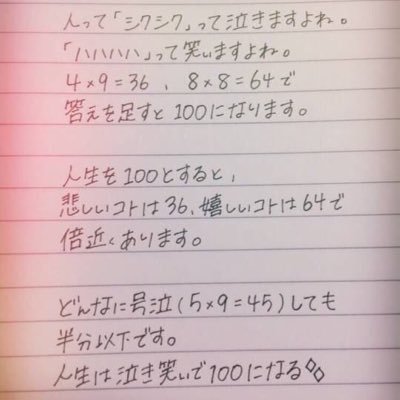 人って「シクシク」って泣きますよね。
「ハハハハ」って笑いますよね。
4×9=36 、 8×8=64で
答えを足すと100になります。
人生を100とすると、
悲しいコトは36、嬉しいコトは64で
倍近くあります。
どんなに号泣(5×9=45)しても
半分以下です。
人生は泣き笑いで100になる◇◇